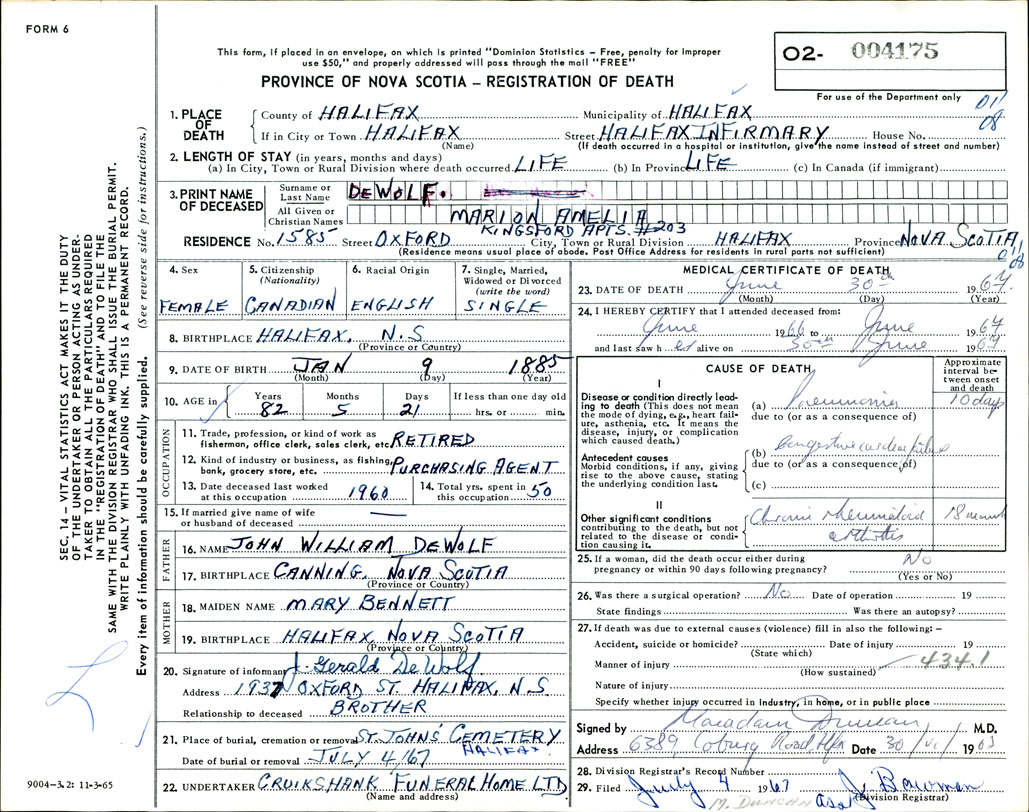 FORM 6
This form, if placed in an envelope, on which is printed "Dominion Statistics – Free, penalty for improper
use $50," and properly addressed will pass through the mail "FREE"
PROVINCE OF NOVA SCOTIA – REGISTRATION OF DEATH
O2- 004175
For use of the Department only
01
08
1. PLACE OF DEATH
County of HALIFAX Municipality of HALIFAX
If in City or Town HALIFAX Street HALIFAX INFIRMARY House No.
(Name) (If death occurred in a hospital or institution, give the name instead of street and number)
2. LENGTH OF STAY (in years, months and days)
(a) In City, Town or Rural Division where death occurred LIFE (b) In Province LIFE (c) In Canada (if immigrant)
3. PRINT NAME OF DECEASED
Surname or Last Name DEWOLF.
All Given or Christian Names MARION AMELIA
KINGSFORD APTS. #203
RESIDENCE No. 1585 Street OXFORD City, Town or Rural Division HALIFAX Province NOVA SCOTIA
(Residence means usual place of abode. Post Office Address for residents in rural parts not sufficient)
01
08
SEC. 14 – VITAL STATISTICS ACT MAKES IT THE DUTY
OF THE UNDERTAKER OR PERSON ACTING AS UNDER-
TAKER TO OBTAIN ALL THE PARTICULARS REQUIRED
IN THE "REGISTRATION OF DEATH" AND TO FILE THE
SAME WITH THE DIVISION REGISTRAR WHO SHALL ISSUE THE BURIAL PERMIT.
WRITE PLAINLY WITH UNFADING INK. THIS IS A PERMANENT RECORD.
Every item of information should be carefully supplied. (See reverse side for instructions.)
4. Sex FEMALE
5. Citizenship (Nationality) CANADIAN
6. Racial Origin ENGLISH
7. Single, Married, Widowed or Divorced (write the word) SINGLE
8. BIRTHPLACE HALIFAX, N.S
(Province or Country)
9. DATE OF BIRTH JAN 9 1885
(Month) (Day) (Year)
10. AGE in Years Months Days If less than one day old
82 5 21 hrs. or min.
OCCUPATION
11. Trade, profession, or kind of work as
fisherman, office clerk, sales clerk, etc. RETIRED
12. Kind of industry or business, as fishing,
bank, grocery store, etc. PURCHASING AGENT
13. Date deceased last worked at this occupation 1960
14. Total yrs. spent in this occupation 50
15. If married give name of wife
or husband of deceased —
FATHER
16. NAME JOHN WILLIAM DEWOLF
17. BIRTHPLACE CANNING, NOVA SCOTIA
(Province or Country)
MOTHER
18. MAIDEN NAME MARY BENNETT
19. BIRTHPLACE HALIFAX, NOVA SCOTIA
(Province or Country)
20. Signature of informant J. Gerald DeWolf
Address 1937 OXFORD ST. HALIFAX, N.S
Relationship to deceased BROTHER
21. Place of burial, cremation or removal ST. JOHN'S CEMETERY
HALIFAX
Date of burial or removal JULY 4/67
22. UNDERTAKER CRUIKSHANK FUNERAL HOME LTD
(Name and address)
9004-3.2: 11-3-65
MEDICAL CERTIFICATE OF DEATH
23. DATE OF DEATH June 30th 1967.
(Month) (Day) (Year)
24. I HEREBY CERTIFY that I attended deceased from:
June 1966 to June 1967
and last saw her alive on 30th June 1967
CAUSE OF DEATH
Approximate interval between onset and death
I
Disease or condition directly lead-
ing to death (This does not mean
the mode of dying, e.g., heart fail-
ure, asthenia, etc. It means the
disease, injury, or complication
which caused death.)
(a) Pneumonia 10 days
due to (or as a consequence of)
Antecedent causes
Morbid conditions, if any, giving
rise to the above cause, stating
the underlying condition last.
(b) Congestive cardiac failure
due to (or as a consequence of)
(c)
II
Other significant conditions
contributing to the death, but not
related to the disease or condi-
tion causing it.
Chronic rheumatoid 18
arthritis
25. If a woman, did the death occur either during
pregnancy or within 90 days following pregnancy? No
(Yes or No)
26. Was there a surgical operation? No Date of operation 19
State findings Was there an autopsy?
27. If death was due to external causes (violence) fill in also the following: –
Accident, suicide or homicide? Date of injury 19
(State which)
Manner of injury 434.1
(How sustained)
Nature of injury
Specify whether injury occurred in industry, in home, or in public place
Signed by Macadam Duncan M.D.
Address 6389 Coburg Road Hfx Date 30/vi/ 19
28. Division Registrar's Record Number
29. Filed July 4 1967 J. Bowman
(Division Registrar)
M. DUNCAN